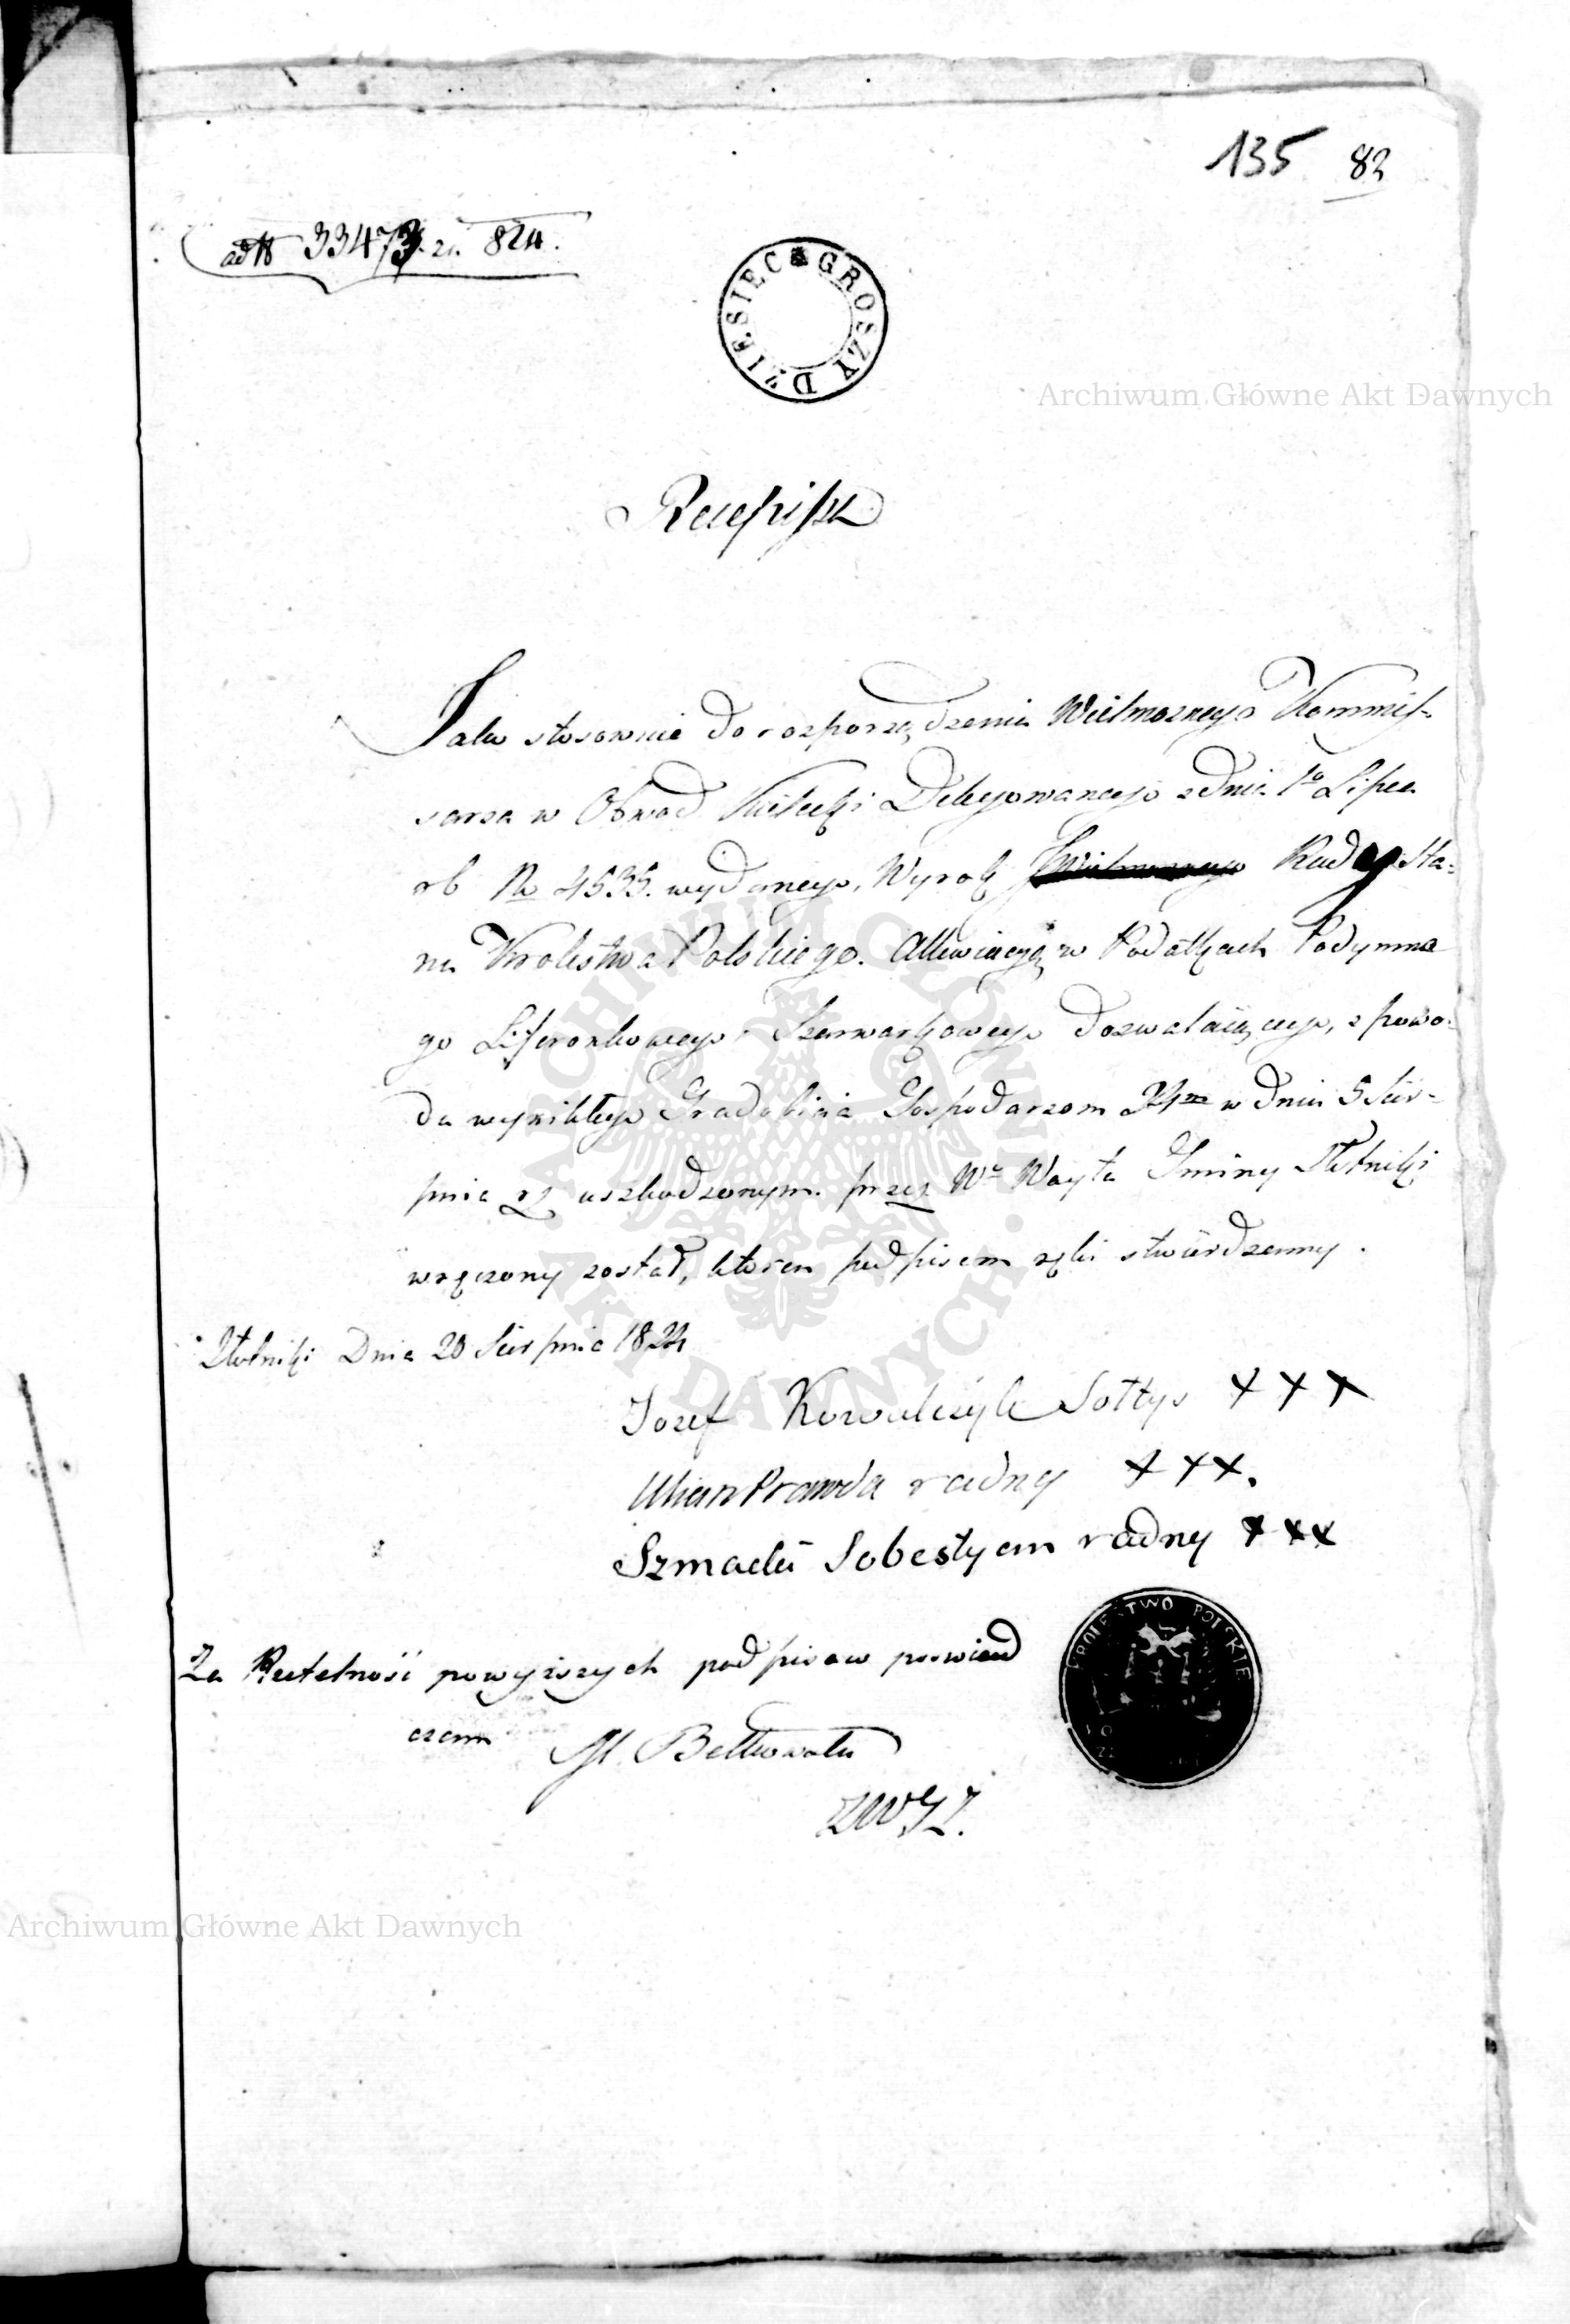 135 82
ad N 33473. 21. 824.
DZIESIEC * GROSZY
Archiwum Główne Akt Dawnych
Recepisse
Jako stosownie do rozporządzenia Wielmoznego Kommis-
sarza w Obwod Kielecki Delegowanego z dnia 1o Lipca
rb No 4535. wydanego, Wyrok Rady Sta-
nu Krolestwa Polskiego. Allewiacyą w Podatkach Podymne
go Liferonkowego i Szarwarkowego dozwalaiącego, z powo-
du wynikłego Gradobicia Gospodarzom w dniu 5 Sier-
pnia uszkodzonym. przez Wo Woyta Gminy Złotniki
wręczony został, ktoren podpisem ręki stwierdzamy.
Złotniki Dnia 20 Sierpnia 1824
Jozef Kowalczyk Sołtys + + +
Ulian Prawda radny + + +.
Szmacki Sobestyan radny + + +
KROLESTWO POLSKIE
Za Rzetelność powyższych podpisow poswiad
czam M.
ZWGZ.
Archiwum Główne Akt Dawnych
ARCHIWUM GŁÓWNE · AKT DAWNYCH ·